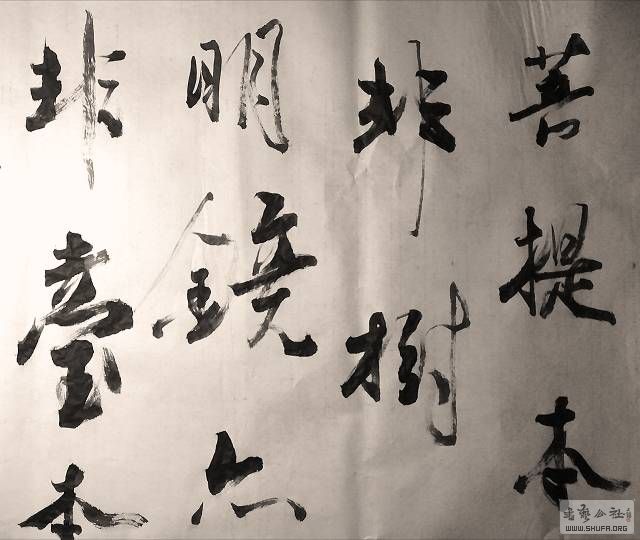 菩提本
非樹
明鏡亦
非臺本
書藝公社
WWW.SHUFA.ORG